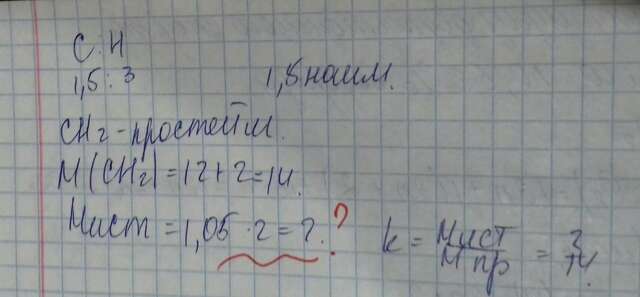 С:Н
1,5:3 1,5 наим.
CH2 - простейш.
M(CH2) = 12+2=14.
Mист = 1,05 · 2 = ?. ?
k = Mист / Mпр = ? / 14.